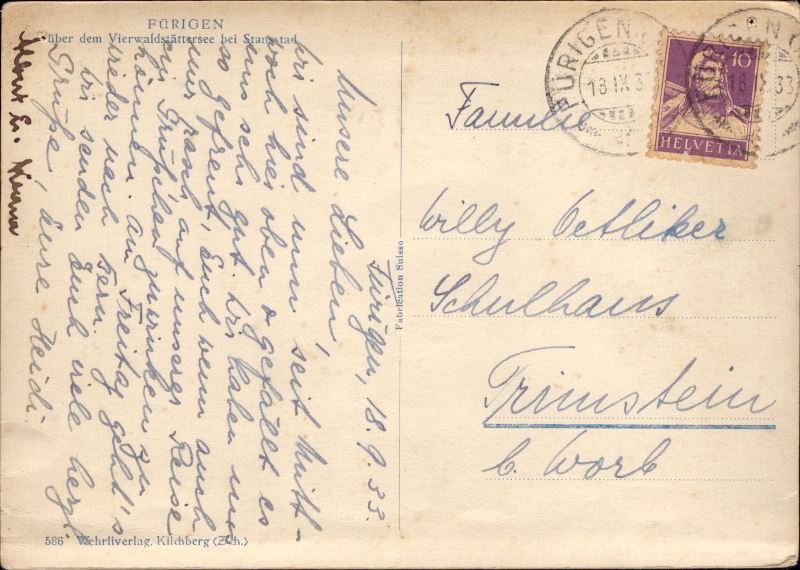 FÜRIGEN
über dem Vierwaldstättersee bei Stansstad
Fürigen, 18. 9. 33.
Unsere Lieben!
Wir sind nun seit Mitt-
woch hier oben & gefällt es
uns sehr gut. Wir haben uns
so gefreut, Euch wenn auch
nur rasch auf unserer Reise
ein Grüßchen zuwinken zu
können. Am Freitag geht's
wieder nach Bern.
Wir senden Euch viele herzl.
Grüße, Eure Heidi.
586 Wehrliverlag, Kilchberg (Zch.)
Fabrication Suisse
FÜRIGEN
18.IX.33
10
HELVETIA
Familie
Willy Oetliker
Schulhaus
Trimstein
b. Worb